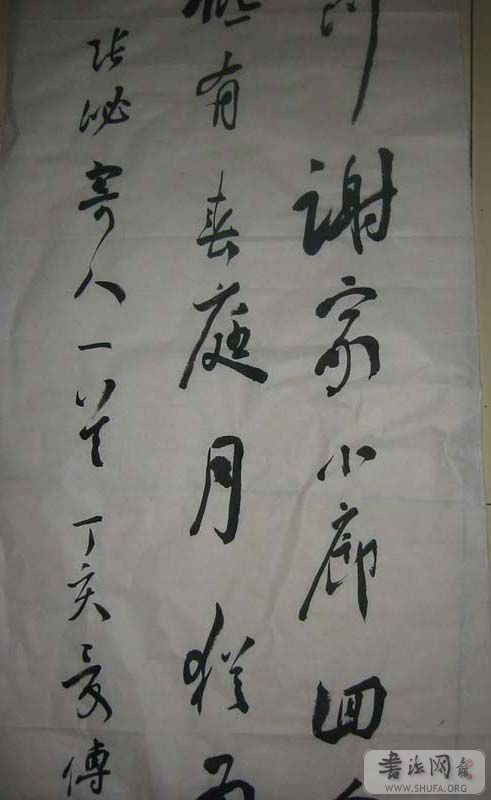 谢家小廊回
有春庭月猶为
张泌寄人一首 丁亥夏傅
書法网
WWW.SHUFA.ORG